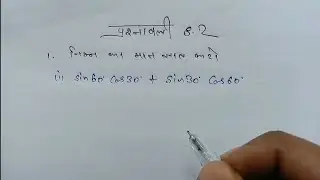 प्रश्नावली 8.2
1. निम्न का मान ज्ञात करो
(i) sin60° cos30° + sin30° cos60°